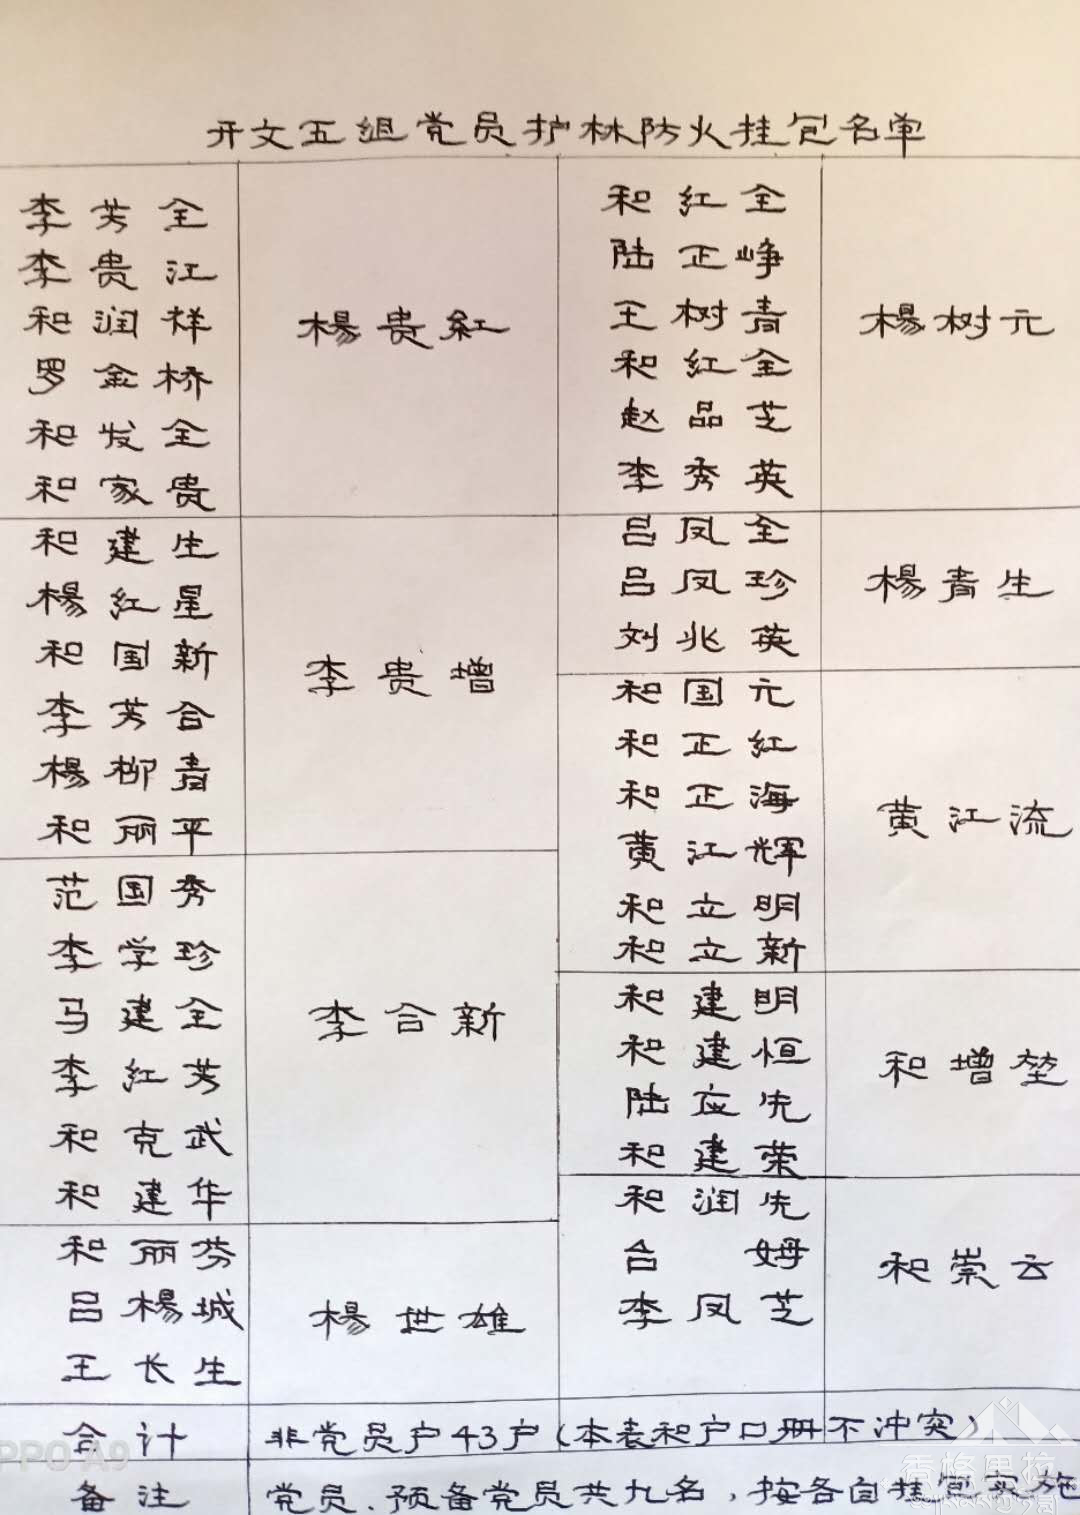 开文五组党员护林防火挂包名单
李芳全
李贵江
和润祥
罗金桥
和发全
和家贵
楊贵紅
和建生
楊红星
和国新
李芳合
楊柳青
和丽平
李贵增
范国秀
李学珍
马建全
李红芳
和克武
和建华
李合新
和丽芬
吕楊城
王长生
楊世雄
和红全
陆正峥
王树青
和红全
赵品芝
李秀英
楊树元
吕凤全
吕凤珍
刘兆英
楊青生
和国元
和正红
和正海
黄江辉
和立明
和立新
黄江流
和建明
和建恒
陆应先
和建荣
和增堃
和润先
合姆
李凤芝
和崇云
合计 非党员户43户(本表和户口册不冲突)
备注 党员、预备党员共九名,按各自挂包实施
PPO A9
香格里拉